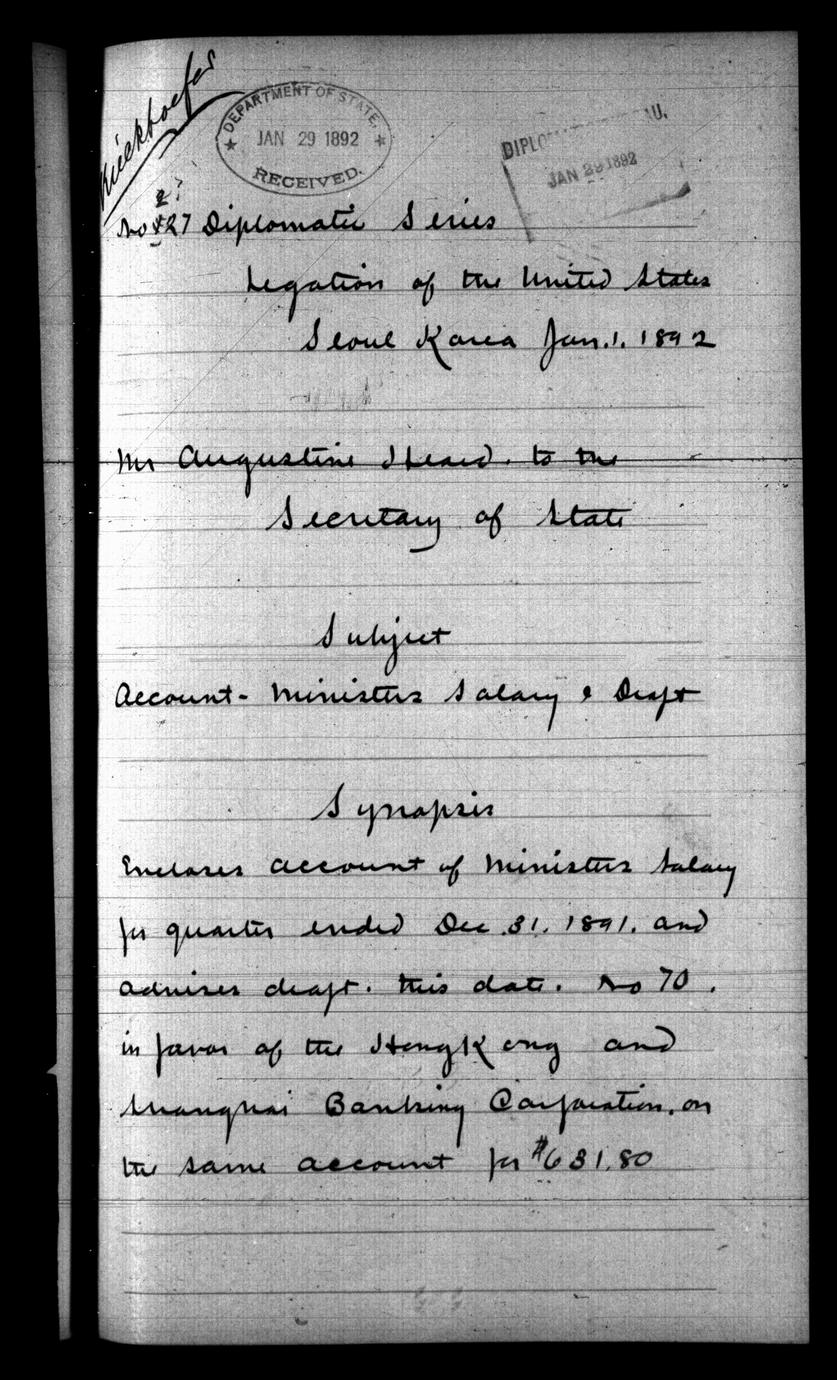 Kieckhoefer
DEPARTMENT OF STATE,
JAN 29 1892
RECEIVED.
JAN 29 1892
2?
No 227 Diplomatic Series
Legation of the United States
Seoul Korea Jan. 1. 1892
Mr Augustine Heard. to the
Secretary of State
Subject
Account - Ministers Salary & Draft
Synopsis
Encloses account of Ministers Salary
for quarter ended Dec. 31. 1891. and
advises draft. this date. No 70.
in favor of the HongKong and
Shanghai Banking Corporation. on
the same account for $631.80